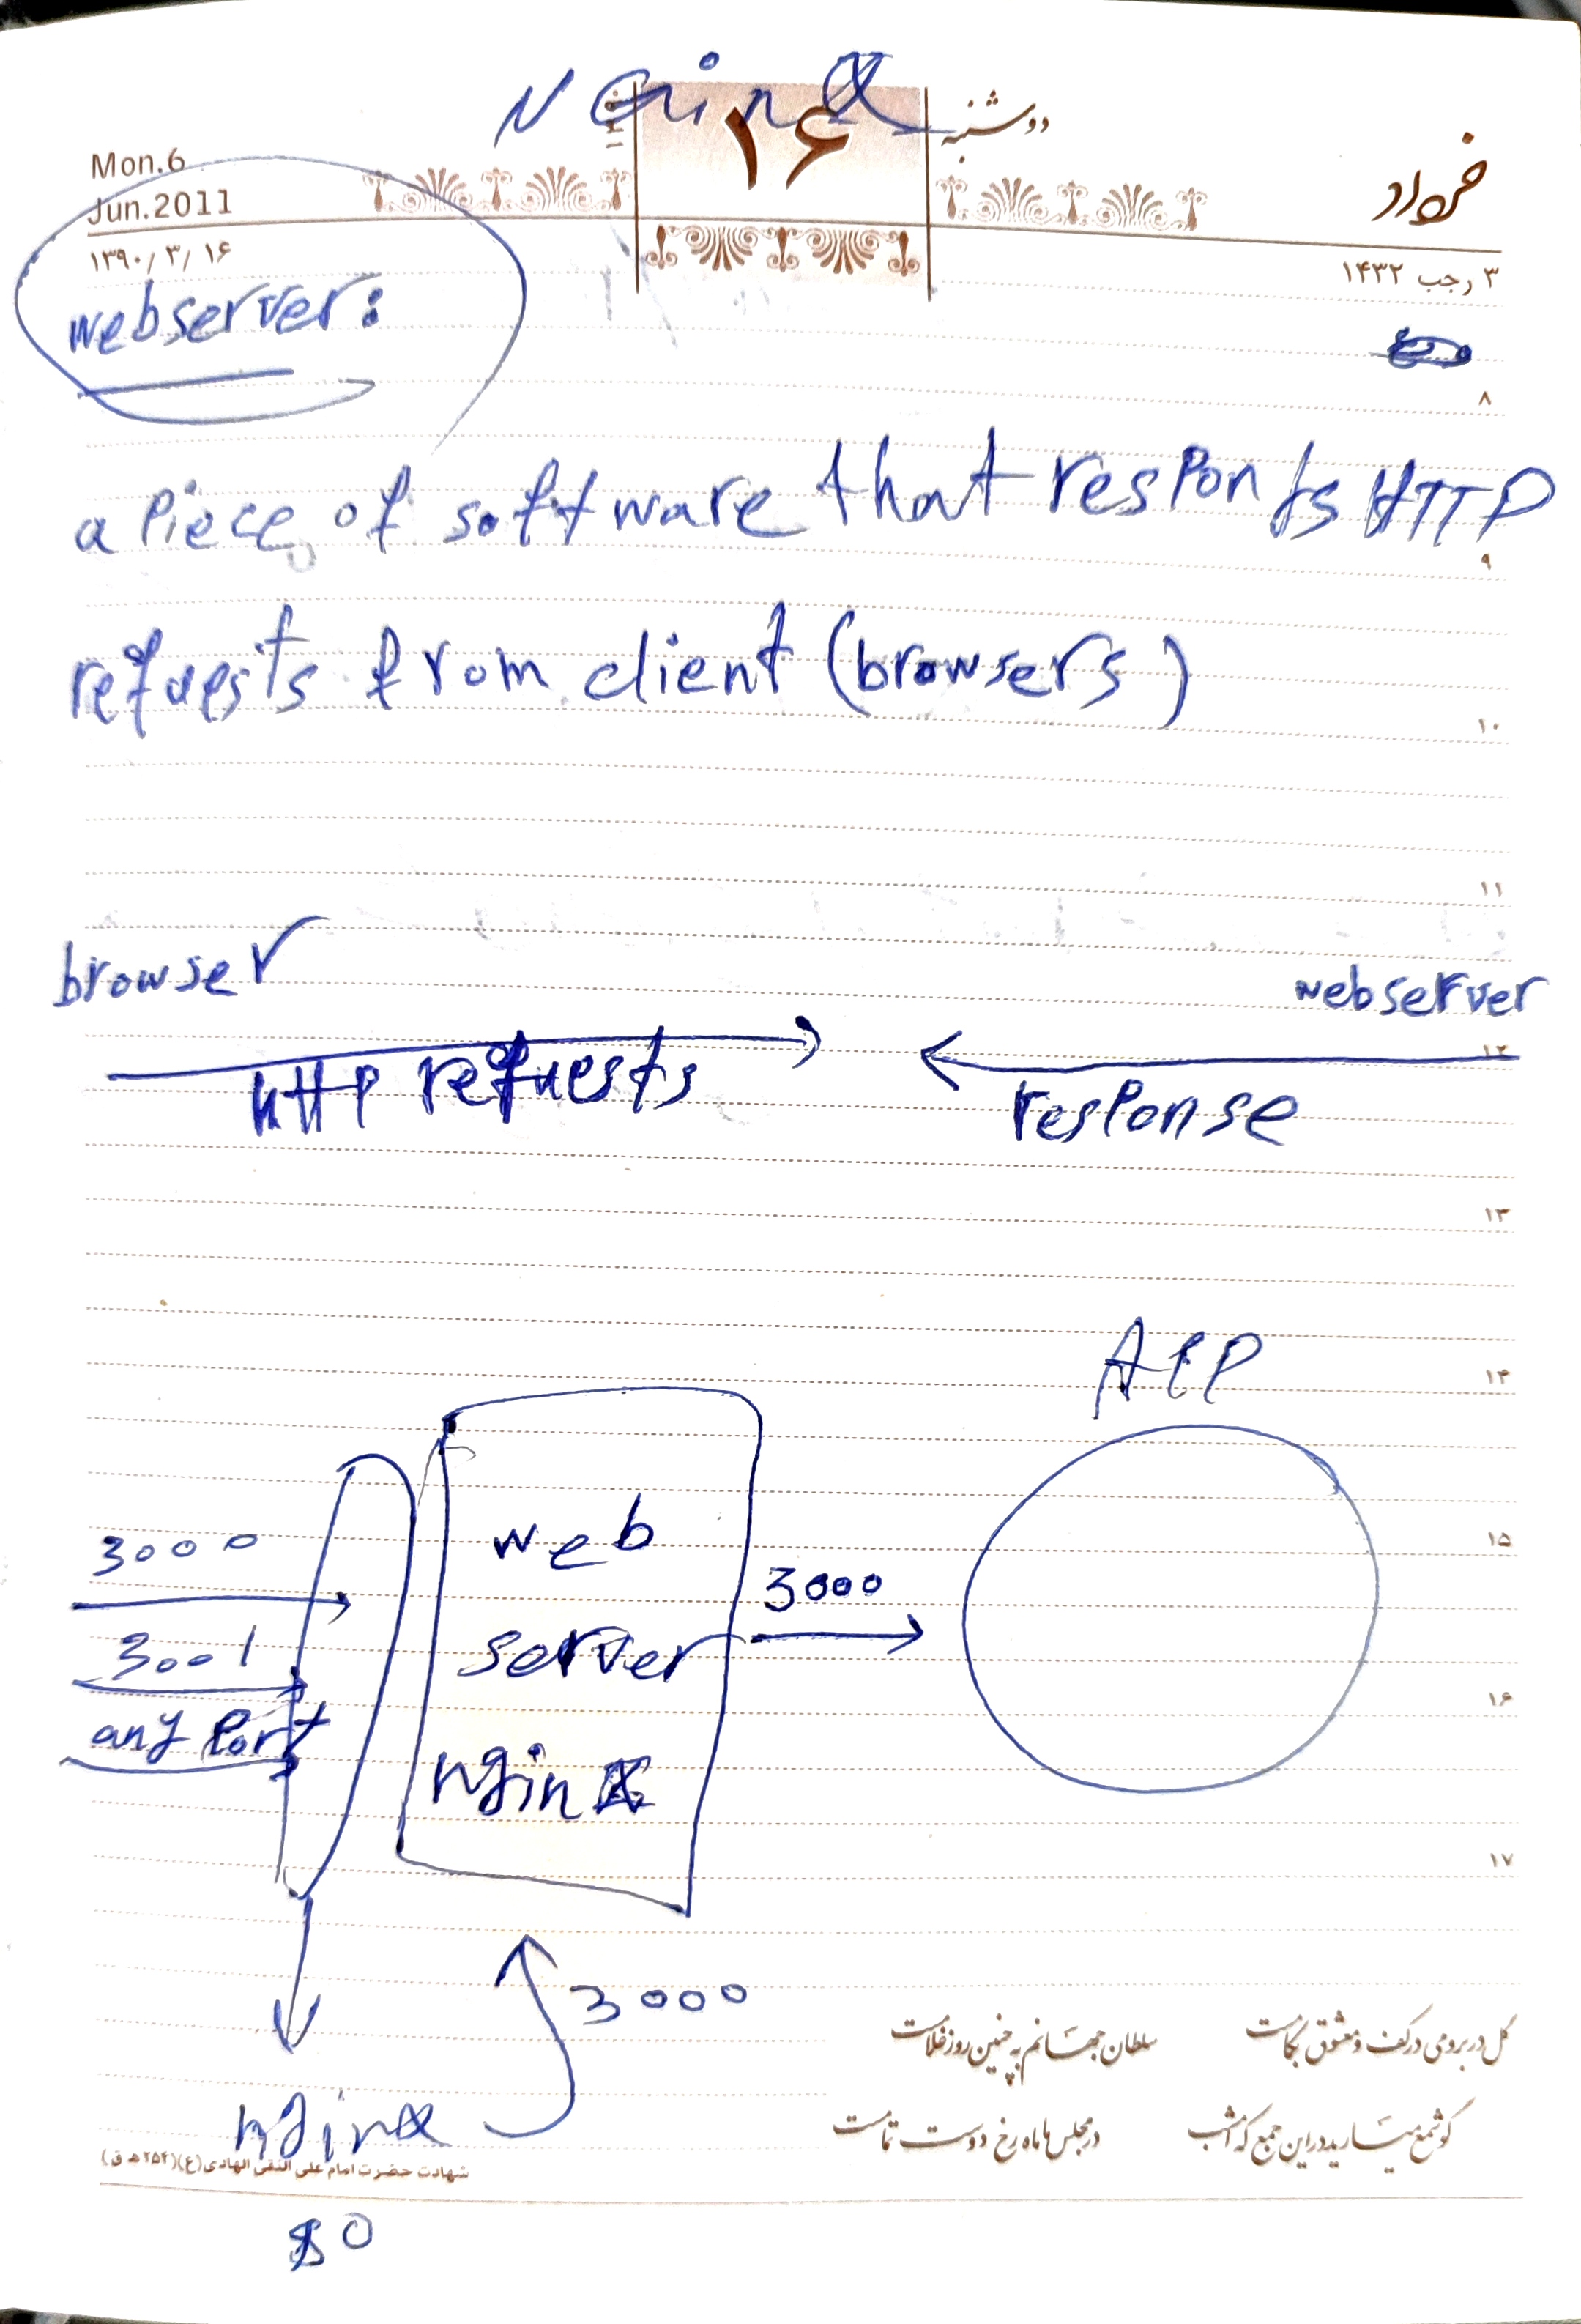 Nginx
دوشنبه
۱۶
خرداد
Mon.6
Jun.2011
۱۳۹۰/۳/۱۶
۳ رجب ۱۴۳۲
webserver:
۸
a Piece of software that responts HTTP
۹
requests from client (browsers)
۱۰
۱۱
browser
webserver
۱۲
HTTP requests
response
۱۳
۱۴
APP
3000
web
۱۵
3000
3001
server
۱۶
any Port
nginx
۱۷
3000
گل در بر و می در کف و معشوق بکامست
سلطان جهانم به چنین روز غلامست
گو شمع میارید در این جمع که امشب
در مجلس ما ماه رخ دوست تمامست
nginx
شهادت حضرت امام علی النقی الهادی(ع)(۲۵۴ ه ق)
80